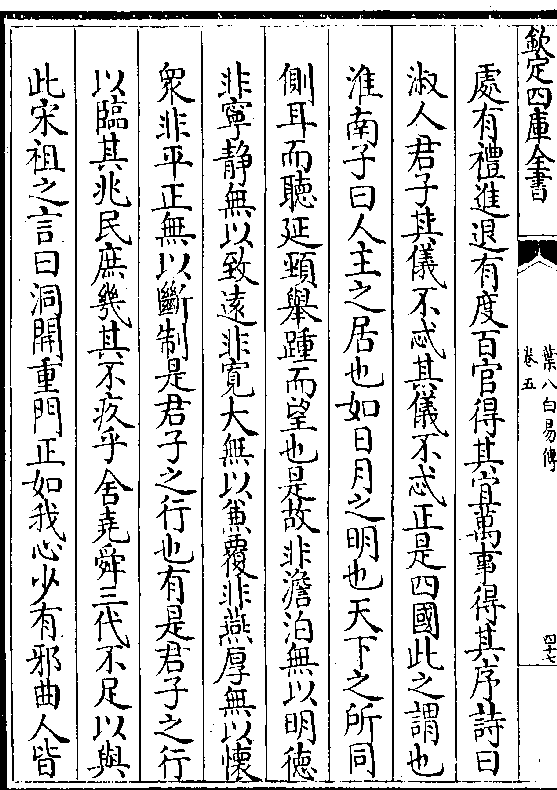 欽定四庫全書
葉八白易傳
卷五
四十七
處有禮進退有度百官得其宜萬事得其序詩曰
淑人君子其儀不忒其儀不忒正是四國此之謂也
淮南子曰人主之居也如日月之明也天下之所同
側耳而聽延頸舉踵而望也是故非澹泊無以明德
非寧静無以致遠非寛大無以兼覆非燕厚無以懷
衆非平正無以斷制是君子之行也有是君子之行
以臨其兆民庶幾其不疚乎舍堯舜三代不足以與
此宋祖之言曰洞開重門正如我心少有邪曲人皆